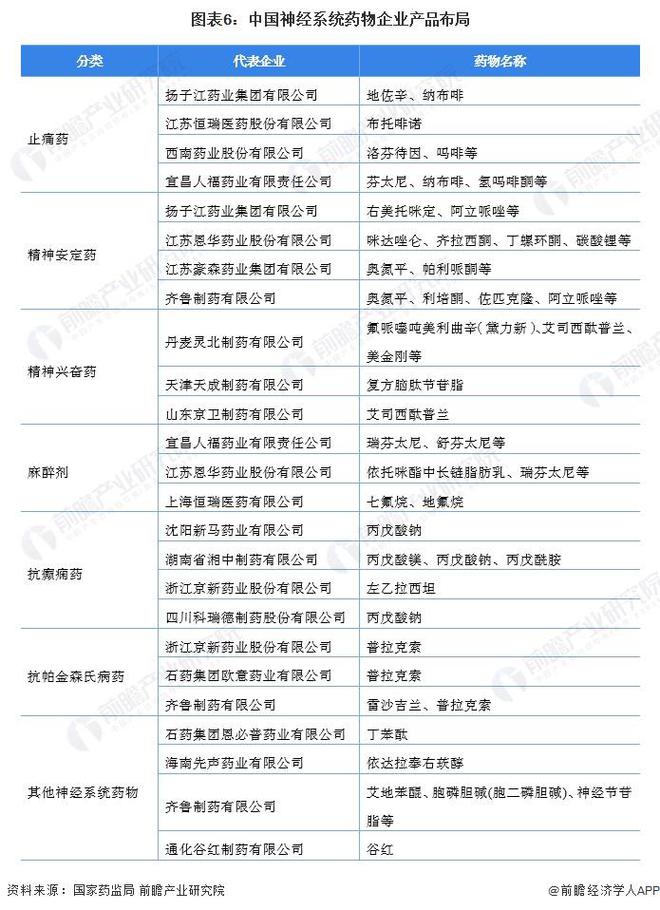 图表6：中国神经系统药物企业产品布局
分类 代表企业 药物名称
止痛药
扬子江药业集团有限公司 地佐辛、纳布啡
江苏恒瑞医药股份有限公司 布托啡诺
西南药业股份有限公司 洛芬待因、吗啡等
宜昌人福药业有限责任公司 芬太尼、纳布啡、氢吗啡酮等
精神安定药
扬子江药业集团有限公司 右美托咪定、阿立哌唑等
江苏恩华药业股份有限公司 咪达唑仑、齐拉西酮、丁螺环酮、碳酸锂等
江苏豪森药业集团有限公司 奥氮平、帕利哌酮等
齐鲁制药有限公司 奥氮平、利培酮、佐匹克隆、阿立哌唑等
精神兴奋药
丹麦灵北制药有限公司 氟哌噻吨美利曲辛（黛力新）、艾司西酞普兰、
美金刚等
天津天成制药有限公司 复方脑肽节苷脂
山东京卫制药有限公司 艾司西酞普兰
麻醉剂
宜昌人福药业有限责任公司 瑞芬太尼、舒芬太尼等
江苏恩华药业股份有限公司 依托咪酯中长链脂肪乳、瑞芬太尼等
上海恒瑞医药有限公司 七氟烷、地氟烷
抗癫痫药
沈阳新马药业有限公司 丙戊酸钠
湖南省湘中制药有限公司 丙戊酸镁、丙戊酸钠、丙戊酰胺
浙江京新药业股份有限公司 左乙拉西坦
四川科瑞德制药股份有限公司 丙戊酸钠
抗帕金森氏病药
浙江京新药业股份有限公司 普拉克索
石药集团欧意药业有限公司 普拉克索
齐鲁制药有限公司 雷沙吉兰、普拉克索
其他神经系统药物
石药集团恩必普药业有限公司 丁苯酞
海南先声药业有限公司 依达拉奉右莰醇
齐鲁制药有限公司 艾地苯醌、胞磷胆碱(胞二磷胆碱)、神经节苷
脂等
通化谷红制药有限公司 谷红
资料来源：国家药监局 前瞻产业研究院
@前瞻经济学人APP
前瞻产业研究院